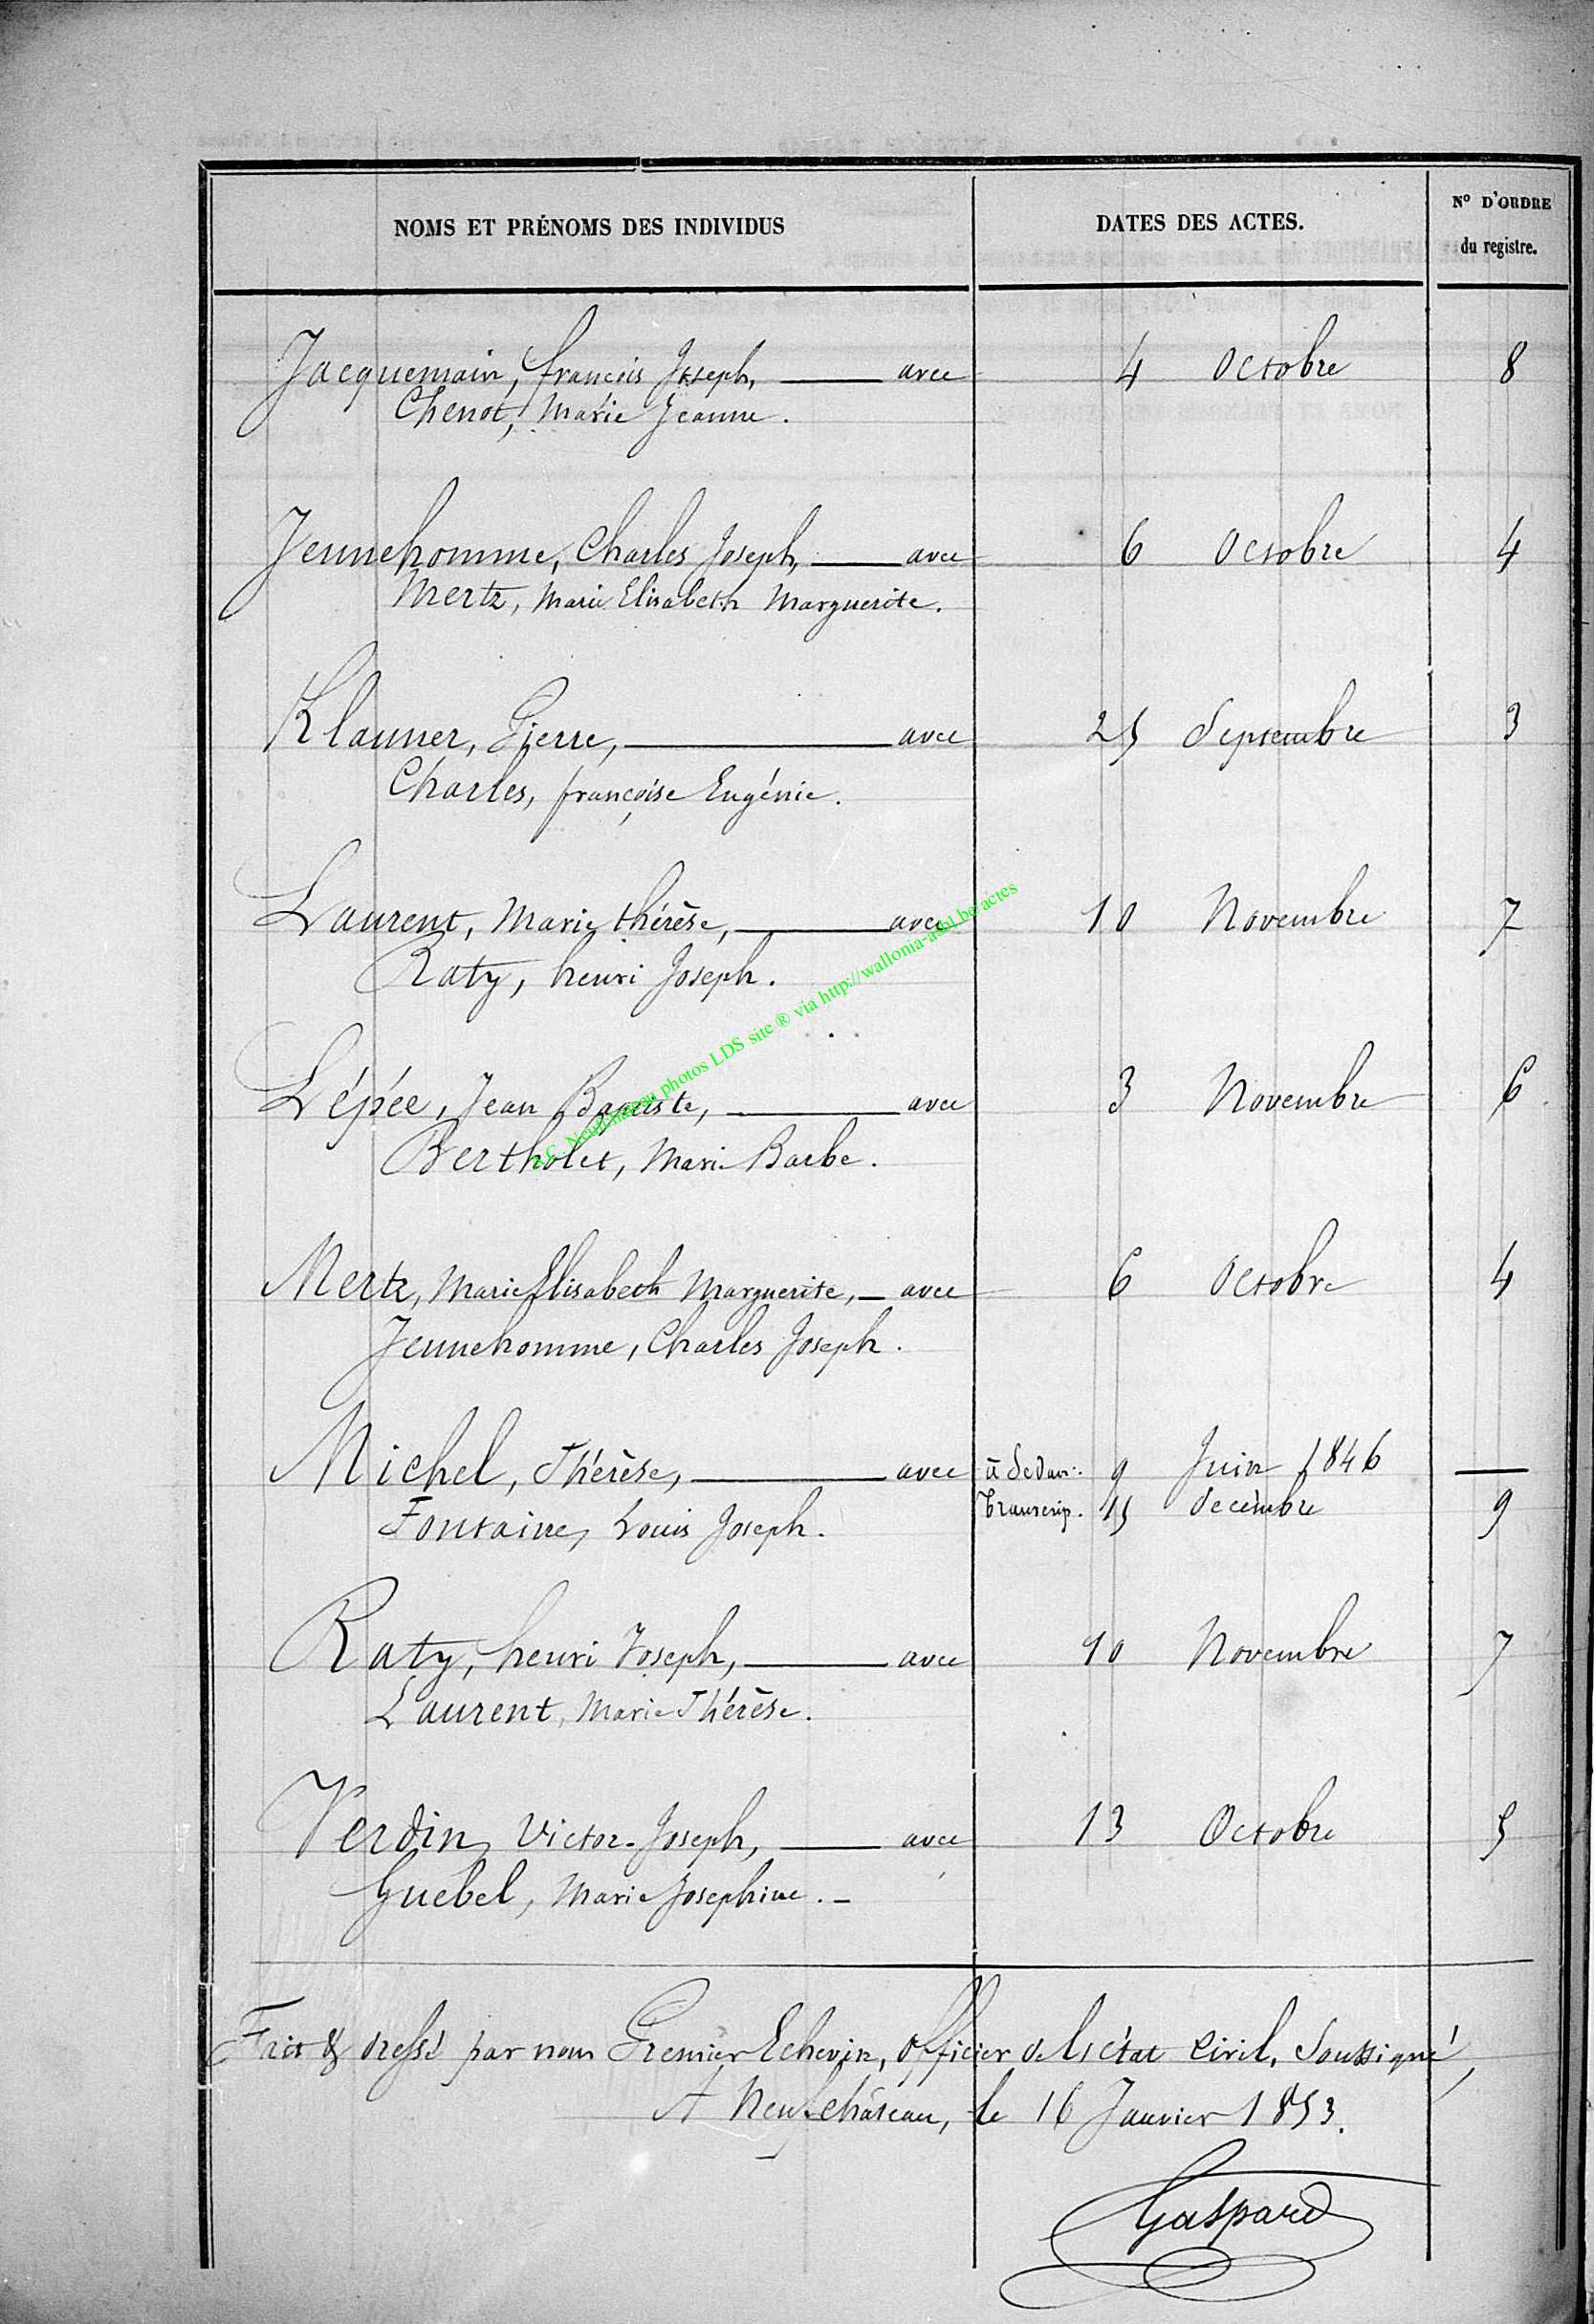 NOMS ET PRÉNOMS DES INDIVIDUS DATES DES ACTES. N° D'ORDRE
du registre.
Jacquemain, françois Joseph, — avec 4 Octobre 8
Chenot, Marie Jeanne.
Jeunehomme, Charles Joseph, — avec 6 Octobre 4
Mertz, Marie Elisabeth Marguerite.
Klauner, Pierre, — avec 25 Septembre 3
Charles, françoise Eugénie.
Laurent, Marie thérèse, — avec 10 Novembre 7
Raty, henri Joseph.
Lépée, Jean Baptiste, — avec 3 Novembre 6
Bertholet, Marie Barbe.
Mertz, Marie Elisabeth Marguerite, — avec 6 Octobre 4
Jeunehomme, Charles Joseph.
Michel, Thérèse, — avec à Sedan: 9 Juin 1846 —
Fontaine, Louis Joseph. Transcrip. 15 decembre 9
Raty, henri Joseph, — avec 10 Novembre 7
Laurent, Marie Thérèse.
Verdin, Victor-Joseph, — avec 13 Octobre 5
Guebel, Marie Josephine. —
Fait & dressé par nous Premier Echevin, Officier de l'état Civil, Soussigné,
A Neufchâteau, le 16 Janvier 1853.
Gaspard
Neufchâteau photos LDS site ® via http://wallonia-asbl.be/actes